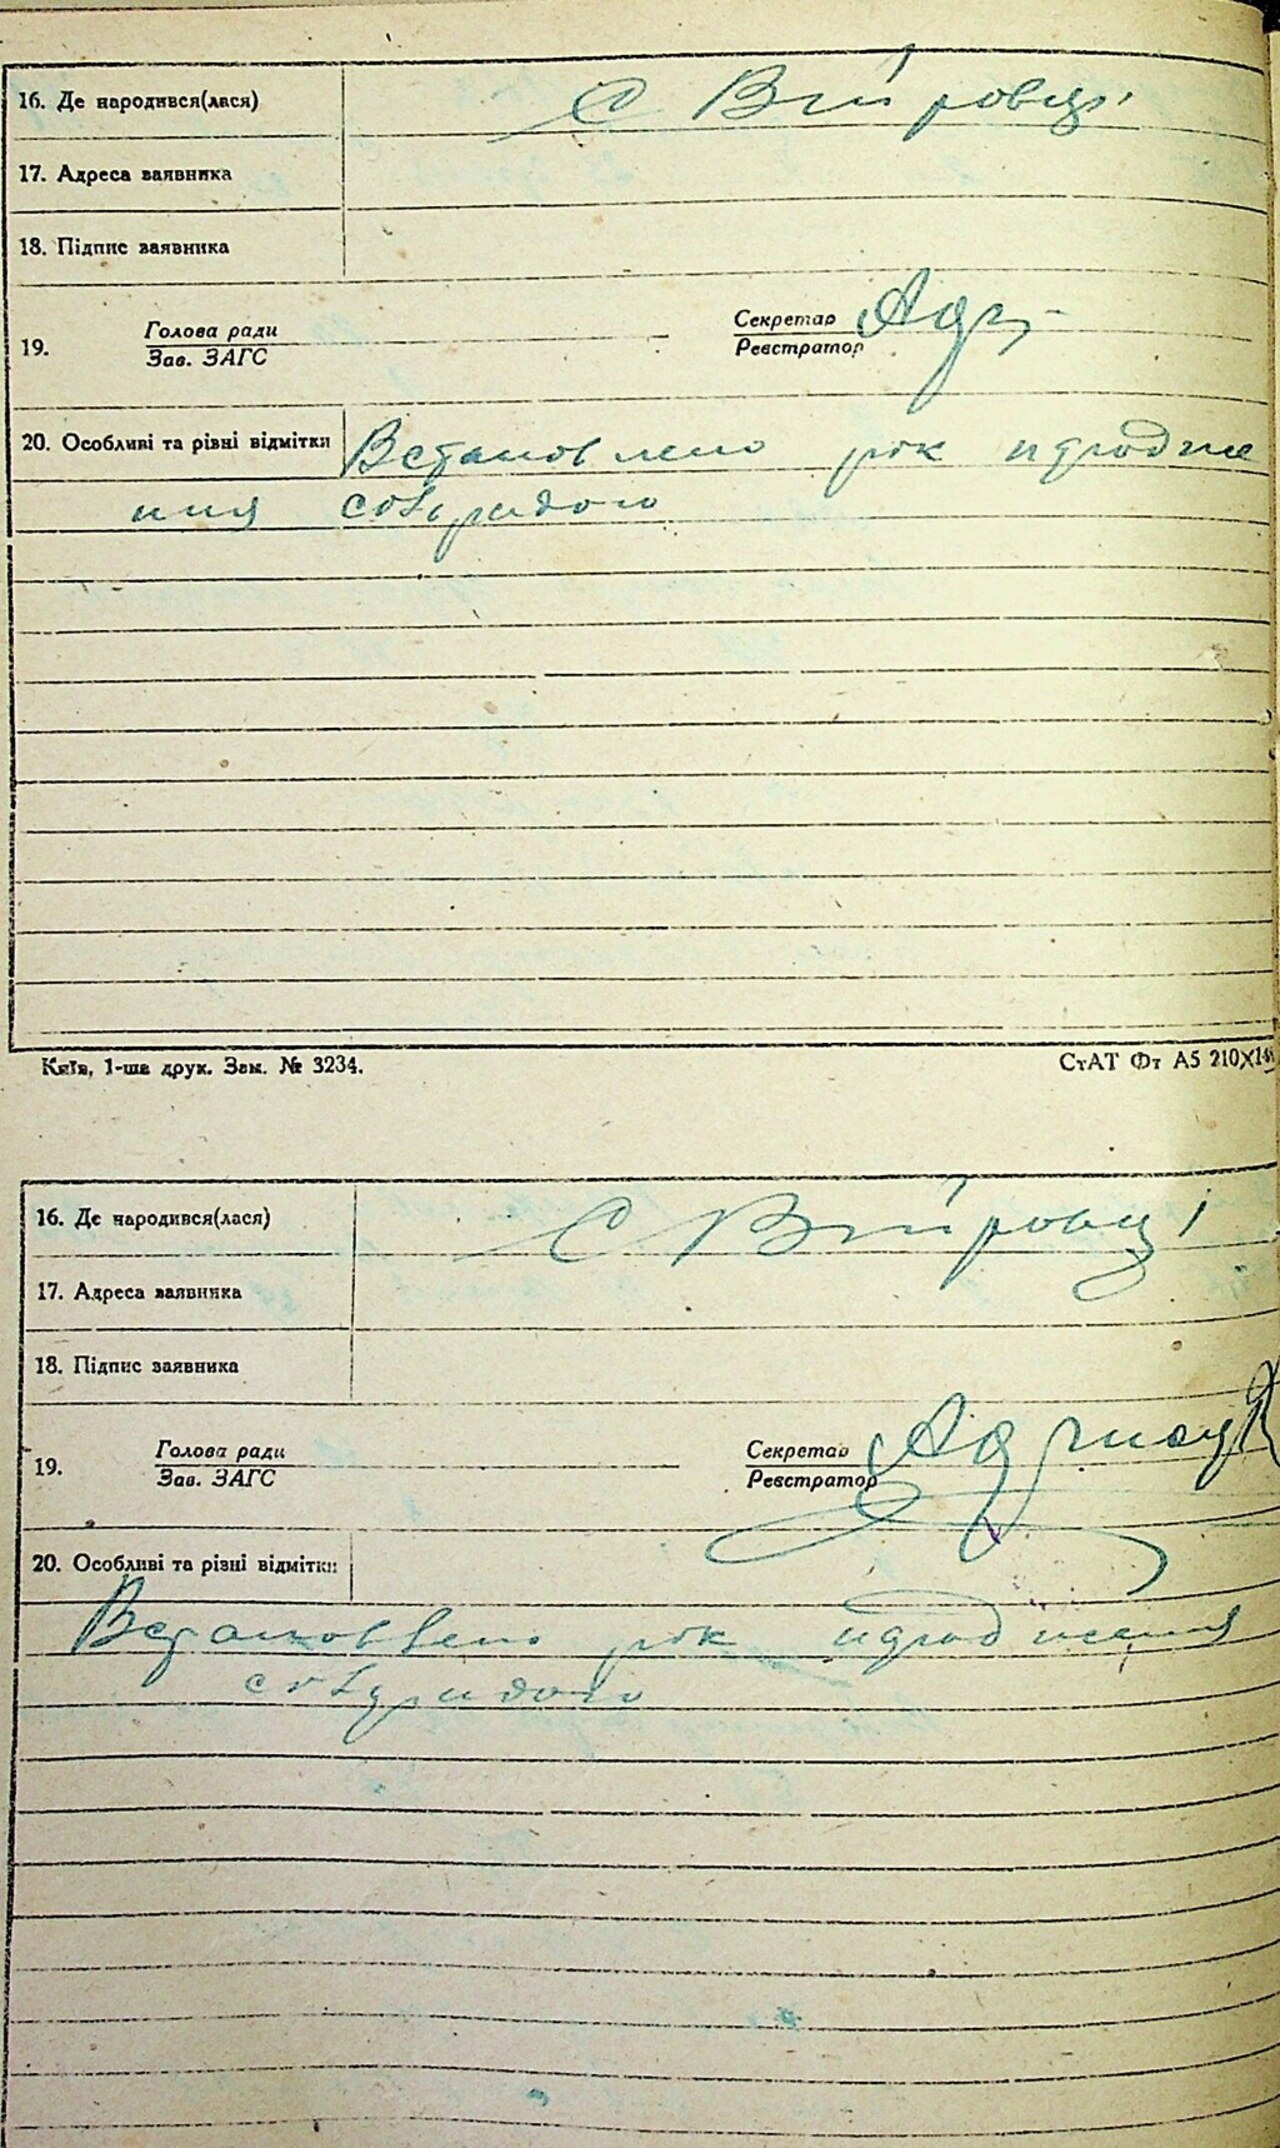 16. Де народився(лася) С Війтівці
17. Адреса заявника
18. Підпис заявника
19. Голова ради Секретар
Зав. ЗАГС Реєстратор
20. Особливі та рівні відмітки Встановлено рік народже
ння
Київ, 1-ша друк. Зам. № 3234. СтАТ Фт А5 210X148
16. Де народився(лася) С
17. Адреса заявника
18. Підпис заявника
19. Голова ради Секретар
Зав. ЗАГС Реєстратор
20. Особливі та різні відмітки
Встановлено рік народження